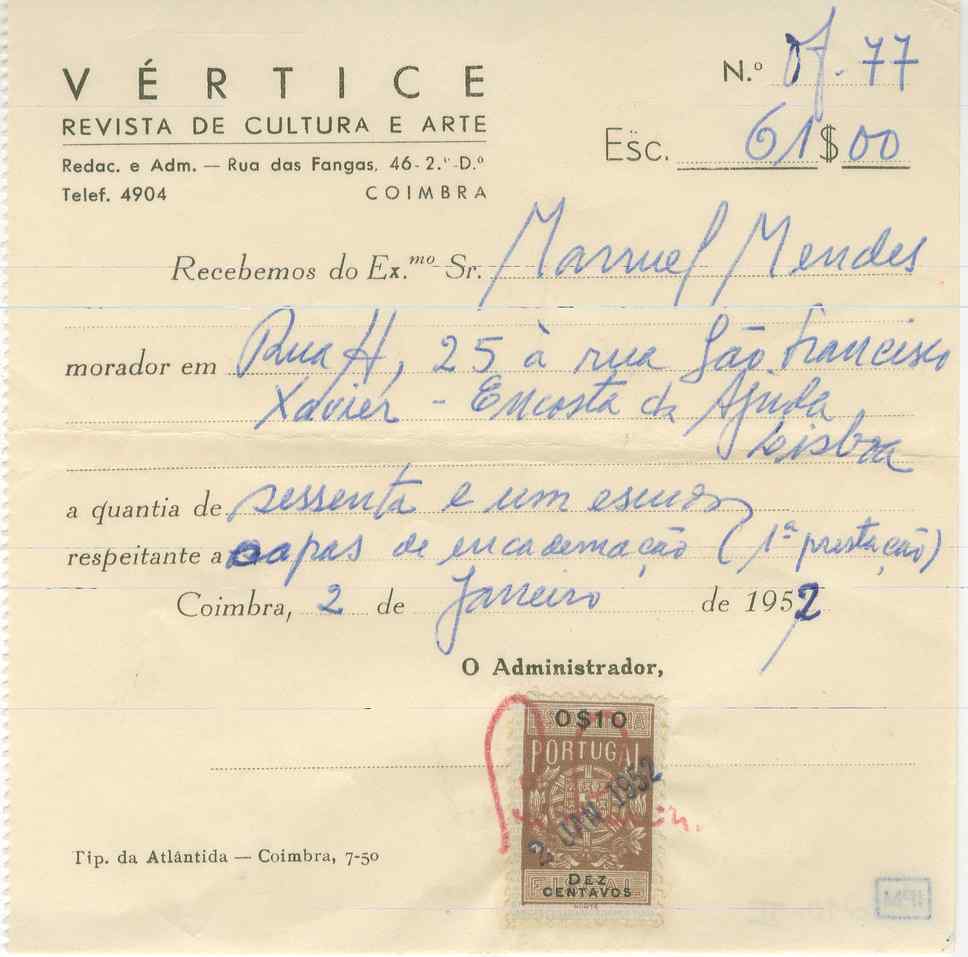 VÉRTICE
REVISTA DE CULTURA E ARTE
Redac. e Adm. — Rua das Fangas, 46-2.º-D.º
Telef. 4904 COIMBRA
N.º Of. 77
Esc. 61$00
Recebemos do Ex.mo Sr. Manuel Mendes
morador em Rua H, 25 à rua São Francisco
Xavier - Encosta da Ajuda
Lisboa
a quantia de sessenta e um escudos
respeitante a capas de encadernação (1ª prestação)
Coimbra, 2 de Janeiro de 1952
O Administrador,
0$10
PORTUGAL
2 JAN. 1952
DEZ
CENTAVOS
Tip. da Atlântida — Coimbra, 7-50